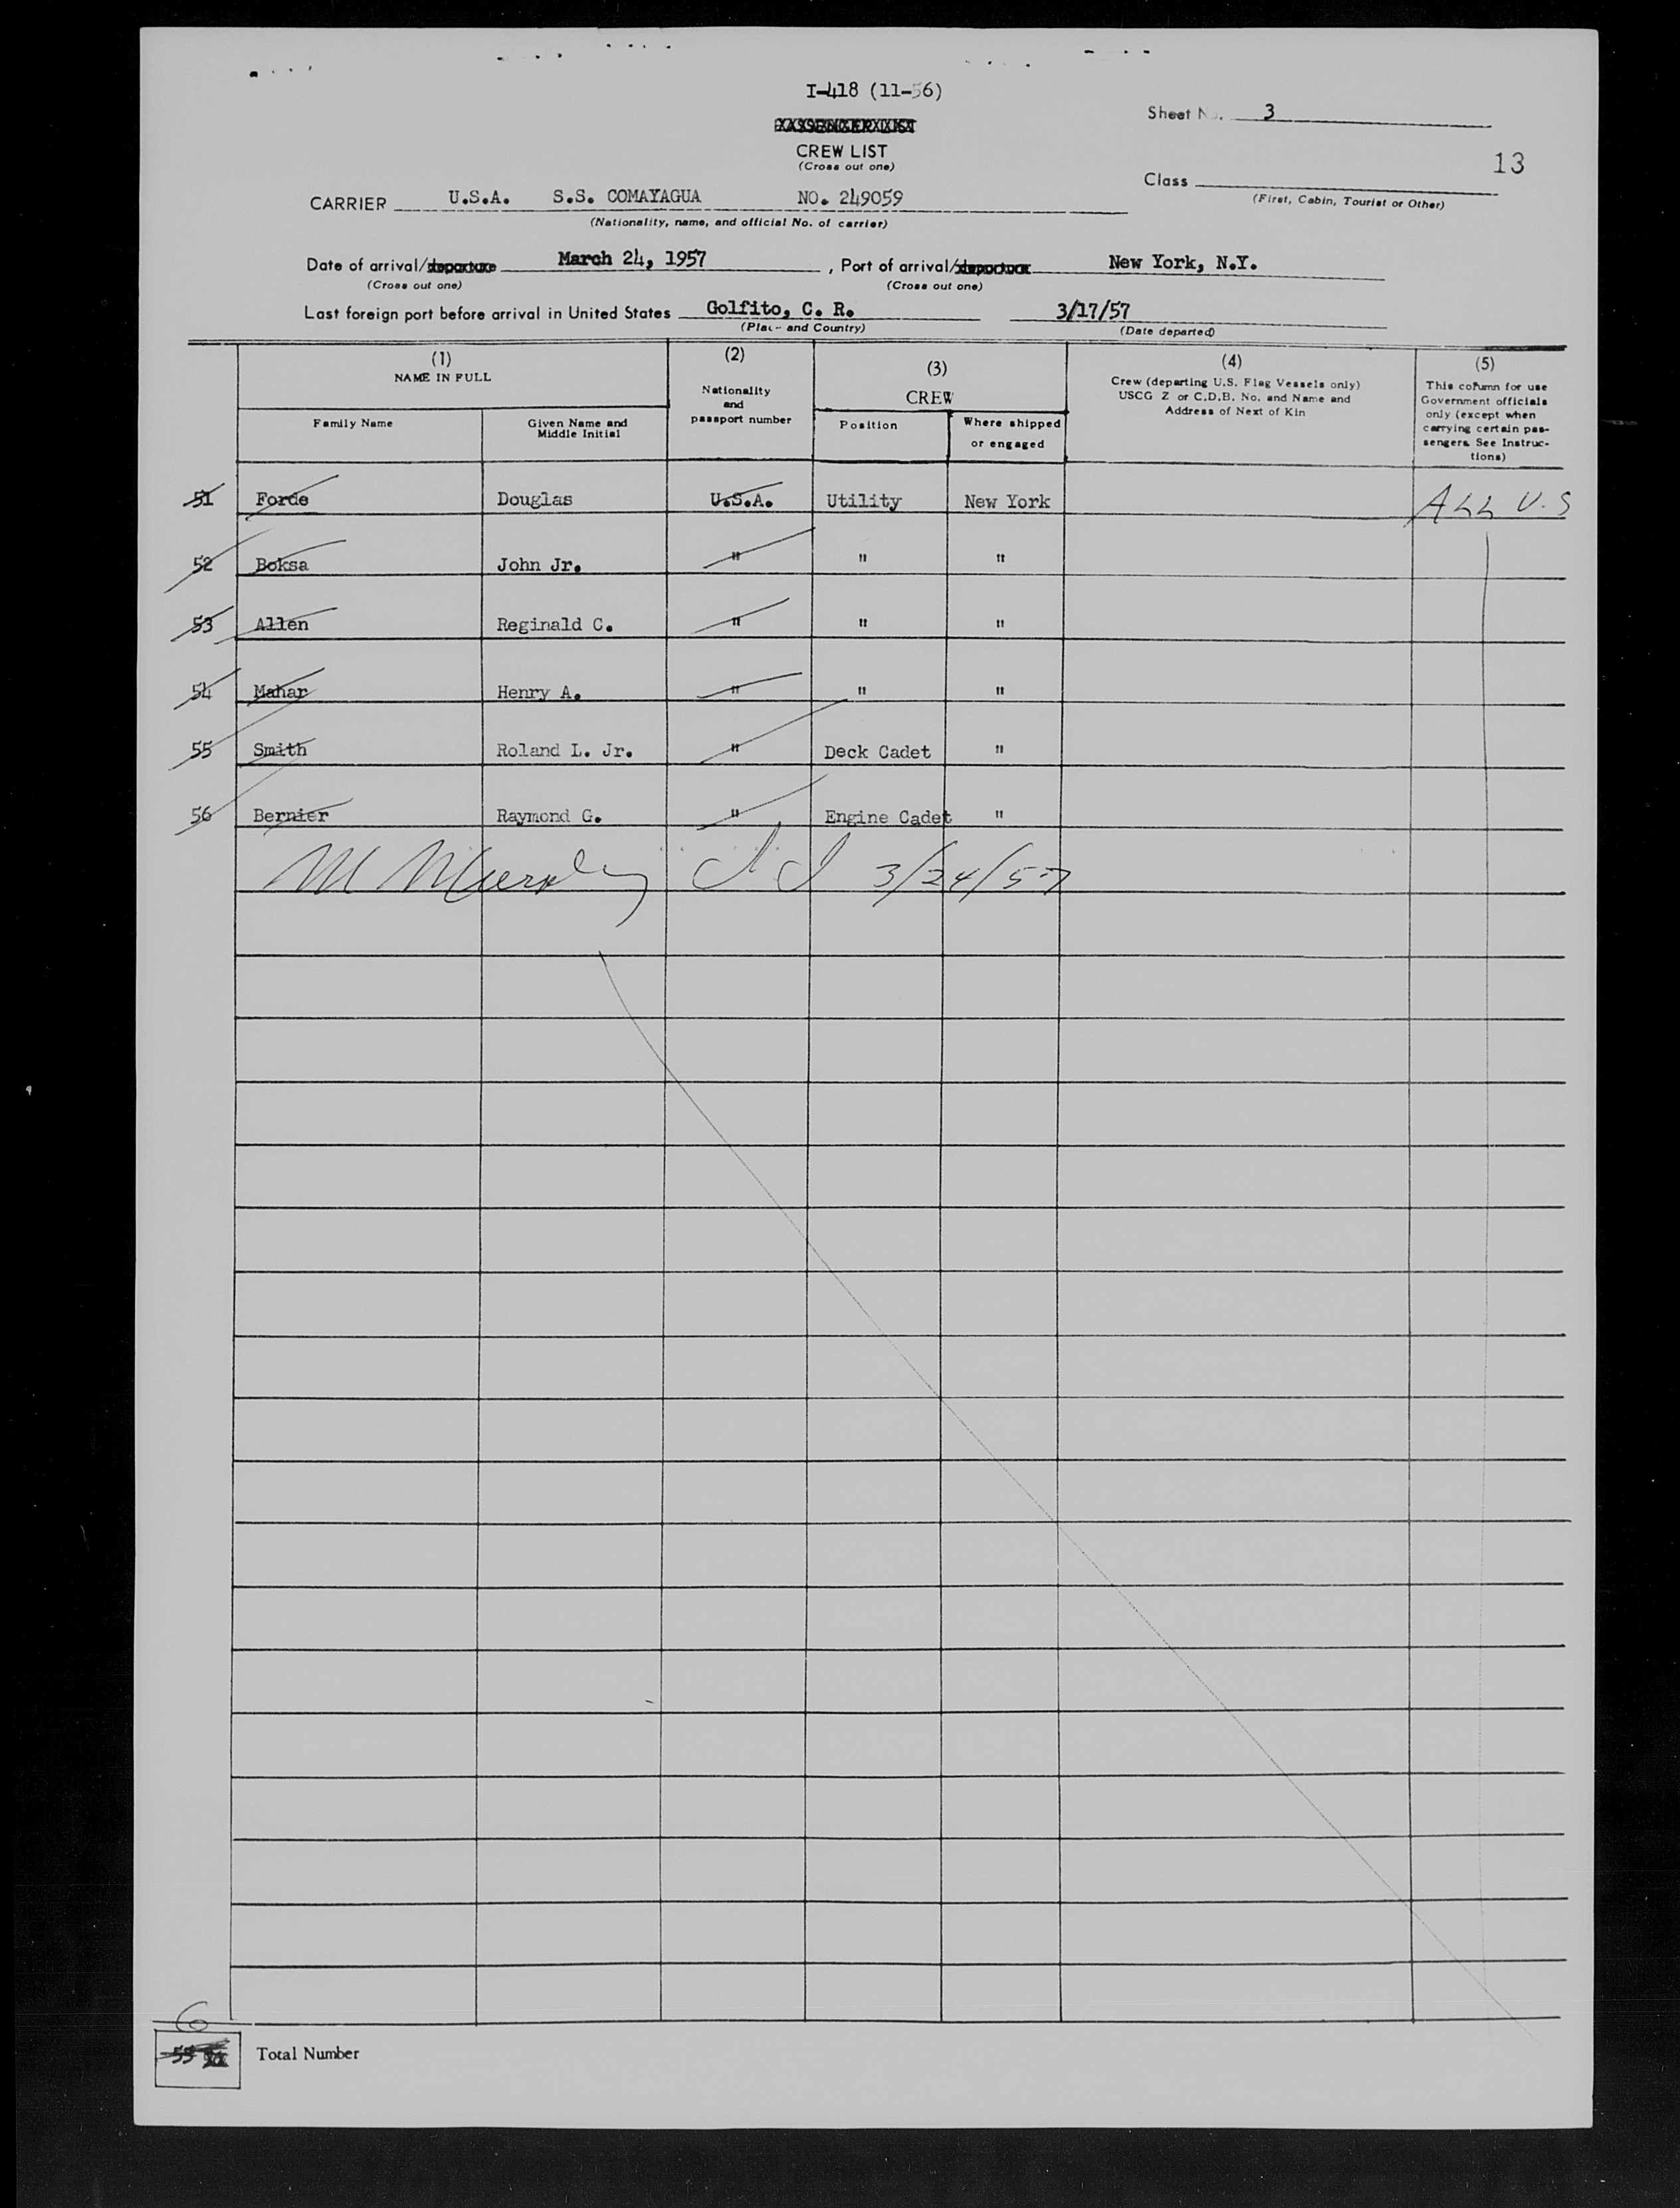 I-418 (11-56)
Sheet No. 3
CREW LIST
(Cross out one)
13
Class
(First, Cabin, Tourist or Other)
CARRIER U.S.A. S.S. COMAYAGUA NO. 249059
(Nationality, name, and official No. of carrier)
Date of arrival/departure March 24, 1957, Port of arrival/departure New York, N.Y.
(Cross out one) (Cross out one)
Last foreign port before arrival in United States Golfito, C. R. 3/17/57
(Place and Country) (Date departed)
(1) (2) (3) (4) (5)
NAME IN FULL
Family Name
Given Name and
Middle Initial
Nationality
and
passport number
CREW
Position
Where shipped
or engaged
Crew (departing U.S. Flag Vessels only)
USCG Z or C.D.B. No. and Name and
Address of Next of Kin
This column for use
Government officials
only (except when
carrying certain pas-
sengers. See Instruc-
tions)
51 Forde Douglas U.S.A. Utility New York ALL U.S
52 Boksa John Jr. " " "
53 Allen Reginald C. " " "
54 Mahar Henry A. " " "
55 Smith Roland L. Jr. " Deck Cadet "
56 Bernier Raymond G. " Engine Cadet "
M Murphy 3/24/57
6
55 Total Number